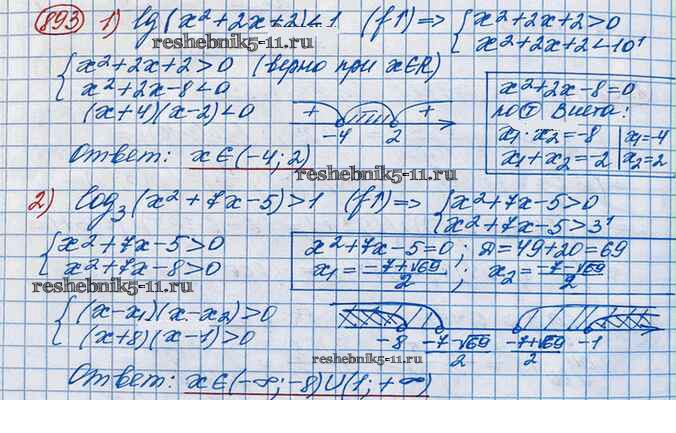 893 1) lg(x²+2x+2)<1 (f↑) => { x²+2x+2>0
x²+2x+2<10¹
reshebnik5-11.ru
{ x²+2x+2>0 (верно при x∈R)
x²+2x-8<0
(x+4)(x-2)<0
+ - 4 2 +
x²+2x-8=0
по т Виета:
x₁·x₂=-8 | x₁=-4
x₁+x₂=-2 | x₂=2
Ответ: x∈(-4; 2)
reshebnik5-11.ru
2) log₃(x²+7x-5)>1 (f↑) => { x²+7x-5>0
x²+7x-5>3¹
{ x²+7x-5>0
x²+7x-8>0
reshebnik5-11.ru
x²+7x-5=0; D=49+20=69
x₁=(-7+√69)/2; x₂=(-7-√69)/2
{ (x-x₁)(x-x₂)>0
(x+8)(x-1)>0
-8 (-7-√69)/2 (-7+√69)/2 -1
reshebnik5-11.ru
Ответ: x∈(-∞; -8)∪(1; +∞)